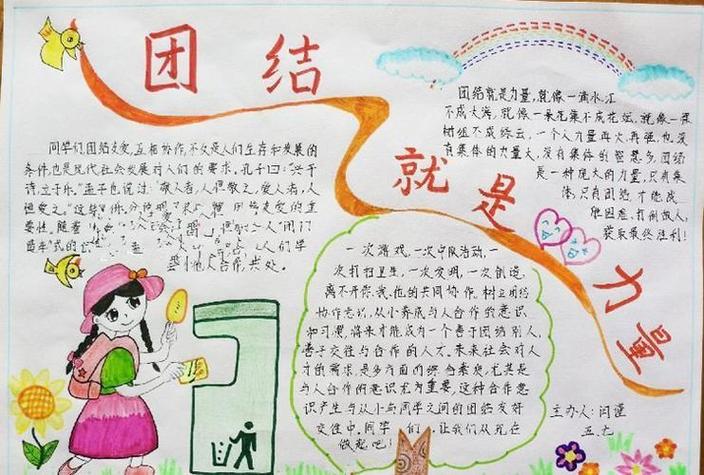 团结
就是
力量
同学们团结友爱,互相协作,不仅是人们生存和发展的
条件,也是现代社会发展对人们的要求。孔子曰:“兴于
诗,立于乐。”孟子也说过:“敬人者,人恒敬之,爱人者,人
恒爱之。”这些
友爱的重
要性。随着
“闭门
造车”式的
人们学
会和他人合作,共处。
团结就是力量,就像一滴水,汇
不成大海,就像一朵花集不成花坛,就像一棵
树组不成绿云,一个人力量再大,再强,也没
有集体的力量大,没有集体的智慧多,团结
是一种强大的力量,只有集
体,只有团结,才能战
胜困难,打倒敌人,
获取最终胜利!
一次游戏,一次中队活动,一
次打扫卫生,一次发明,一次创造,
离不开你,我,他的共同协作。树立团结
协作意识,从小养成与人合作的意识
和习惯,将来才能成为一个善于团结别人,
善于交往与合作的人才。未来社会对人
才的需求是多方面的综合素质,尤其是
与人合作的意识尤为重要,这种合作意
识产生与从小而同学之间的团结友好
交往中。同学们,让我们从现在
做起吧!
主办人:闫谨
五.七